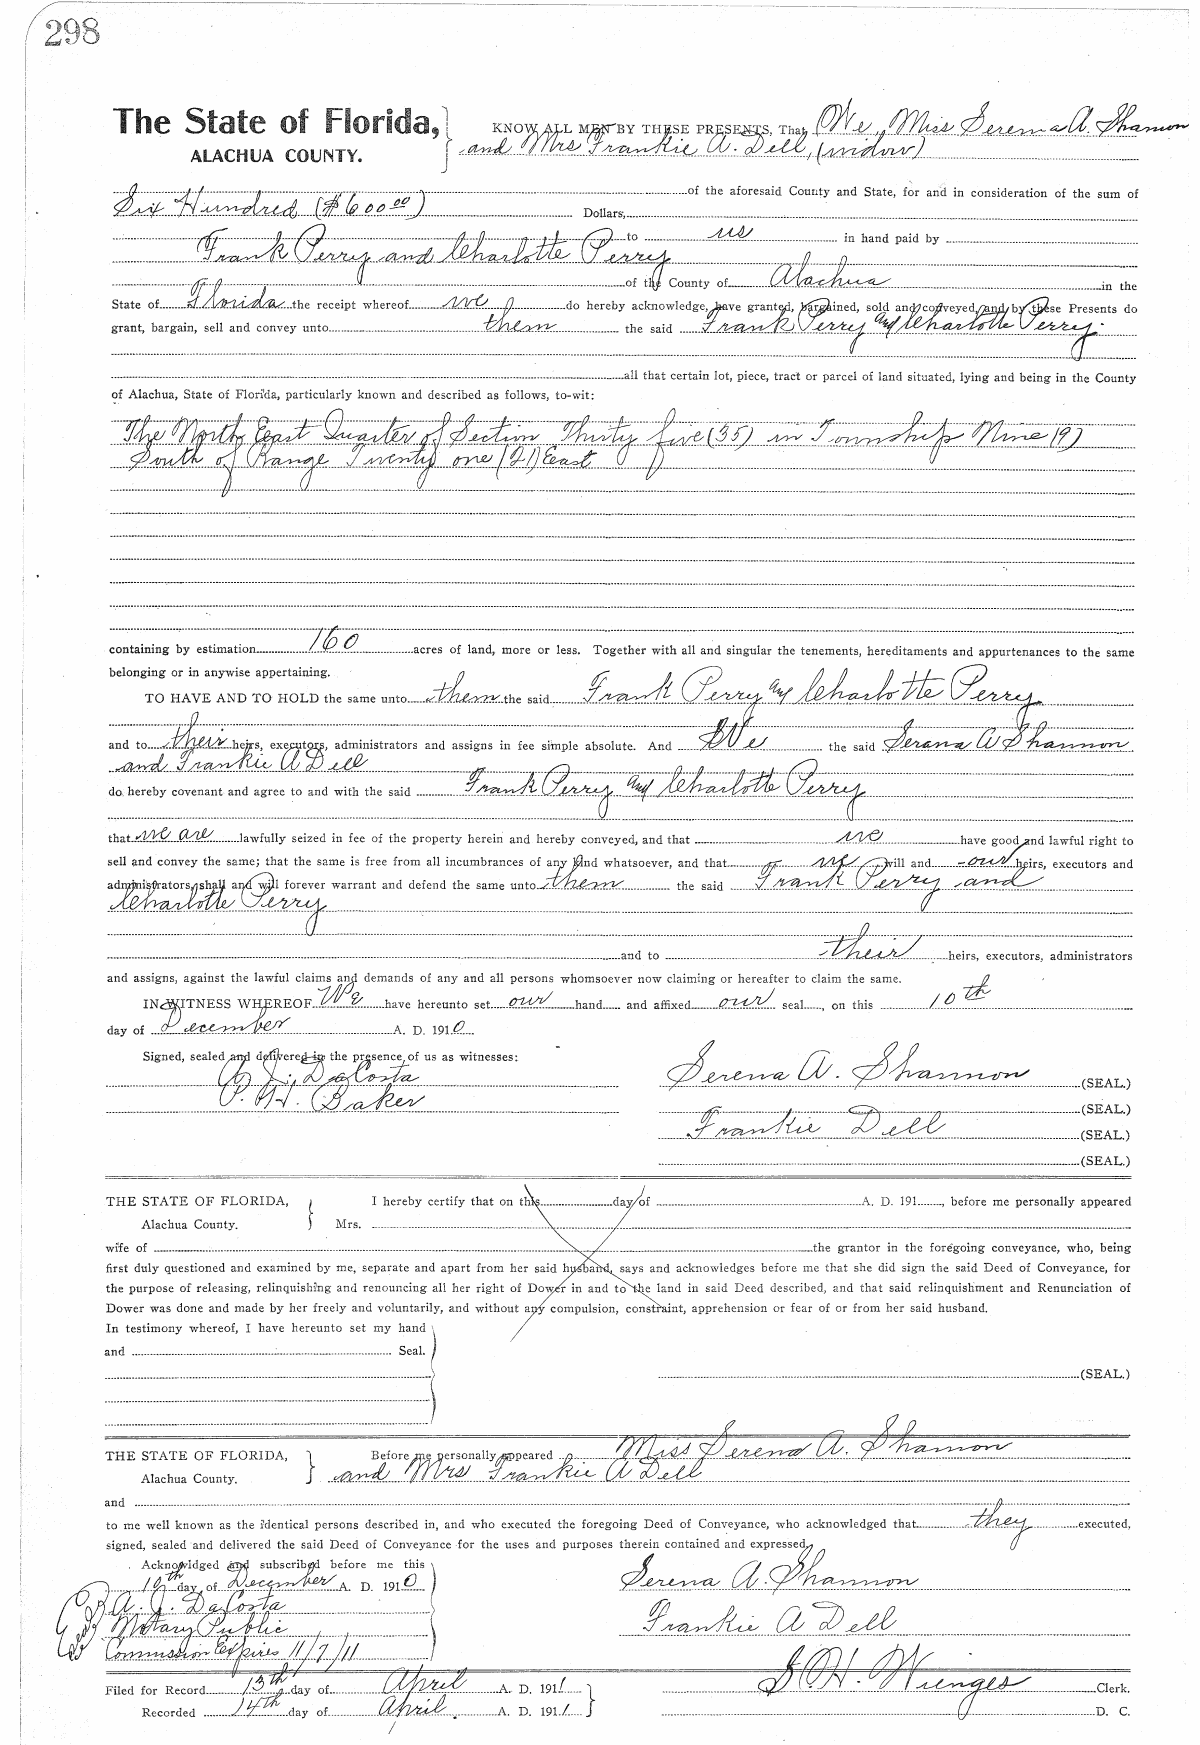 298
The State of Florida,
ALACHUA COUNTY.
KNOW ALL MEN BY THESE PRESENTS, That We, Miss Serena A. Shannon
and Mrs Frankie A. Dell, (widow)
of the aforesaid County and State, for and in consideration of the sum of
Six Hundred ($600.00) Dollars,
to us in hand paid by
Frank Perry and Charlotte Perry
of the County of Alachua in the
State of Florida the receipt whereof we do hereby acknowledge, have granted, bargained, sold and conveyed, and by these Presents do
grant, bargain, sell and convey unto them the said Frank Perry and Charlotte Perry.
all that certain lot, piece, tract or parcel of land situated, lying and being in the County
of Alachua, State of Florida, particularly known and described as follows, to-wit:
The North East Quarter of Section Thirty five (35) in Township Nine (9)
South of Range Twenty one (21) East
containing by estimation 160 acres of land, more or less. Together with all and singular the tenements, hereditaments and appurtenances to the same
belonging or in anywise appertaining.
TO HAVE AND TO HOLD the same unto them the said Frank Perry and Charlotte Perry
and to their heirs, executors, administrators and assigns in fee simple absolute. And We the said Serana A Shannon
and Frankie A Dell
do hereby covenant and agree to and with the said Frank Perry and Charlotte Perry
that we are lawfully seized in fee of the property herein and hereby conveyed, and that we have good and lawful right to
sell and convey the same; that the same is free from all incumbrances of any kind whatsoever, and that we will and our heirs, executors and
administrators, shall and will forever warrant and defend the same unto them the said Frank Perry and
Charlotte Perry
and to their heirs, executors, administrators
and assigns, against the lawful claims and demands of any and all persons whomsoever now claiming or hereafter to claim the same.
IN WITNESS WHEREOF We have hereunto set our hand and affixed our seal, on this 10th
day of December A. D. 1910
Signed, sealed and delivered in the presence of us as witnesses:
A. J. DaCosta
Baker
Serena A. Shannon (SEAL.)
(SEAL.)
Frankie Dell (SEAL.)
(SEAL.)
THE STATE OF FLORIDA,
Alachua County.
I hereby certify that on this day of A. D. 191 , before me personally appeared
Mrs.
wife of the grantor in the foregoing conveyance, who, being
first duly questioned and examined by me, separate and apart from her said husband, says and acknowledges before me that she did sign the said Deed of Conveyance, for
the purpose of releasing, relinquishing and renouncing all her right of Dower in and to the land in said Deed described, and that said relinquishment and Renunciation of
Dower was done and made by her freely and voluntarily, and without any compulsion, constraint, apprehension or fear of or from her said husband.
In testimony whereof, I have hereunto set my hand
and Seal.
(SEAL.)
THE STATE OF FLORIDA,
Alachua County.
Before me personally appeared Miss Serena A. Shannon
and Mrs Frankie A Dell
and
to me well known as the identical persons described in, and who executed the foregoing Deed of Conveyance, who acknowledged that they executed,
signed, sealed and delivered the said Deed of Conveyance for the uses and purposes therein contained and expressed.
Acknowldged and subscribed before me this
10th day of December A. D. 1910
A. J. DaCosta
Notary Public
Commission Expires 11/7/11
Serena A. Shannon
Frankie A Dell
Filed for Record 13th day of April A. D. 1911
Recorded 14th day of April. A. D. 1911
S. H. Wienges Clerk.
D. C.